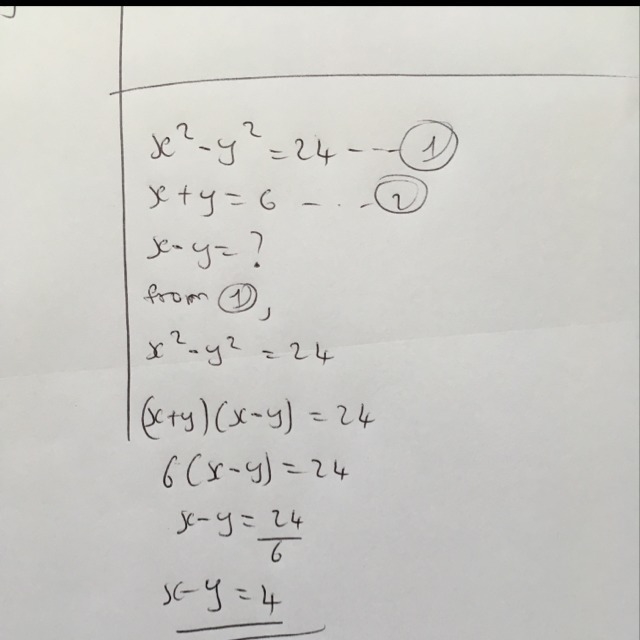 x² - y² = 24 --- ①
x + y = 6 - . . - ②
x - y = ?
from ①,
x² - y² = 24
(x+y)(x-y) = 24
6(x-y) = 24
x-y = 24/6
x-y = 4